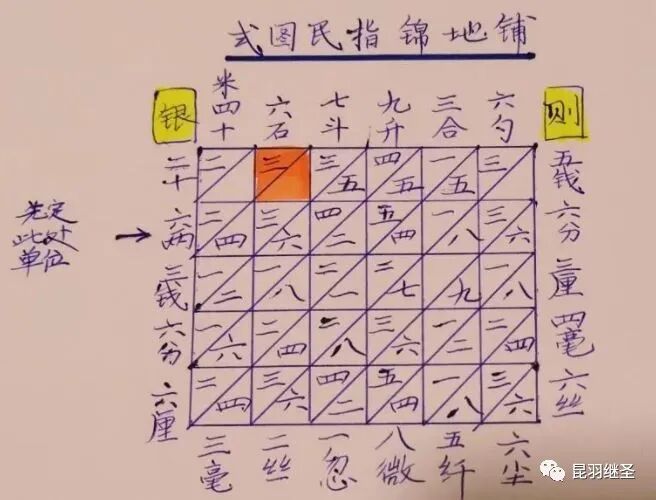 铺地锦指民图式
银 米四十 六石 七斗 九升 三合 六勺 则
二十 二 三 三五 四五 一五 三 五钱
先定
此处
单位
六两 二四 三六 四二 五四 一八 三六 六分
三钱 一二 一八 二一 二七 九 一八 三厘
六分 一六 二四 二八 三六 一二 二四 四毫
六厘 二四 三六 四二 五四 一八 三六 六丝
三毫 二丝 一忽 八微 五纤 六尘
昆羽继圣